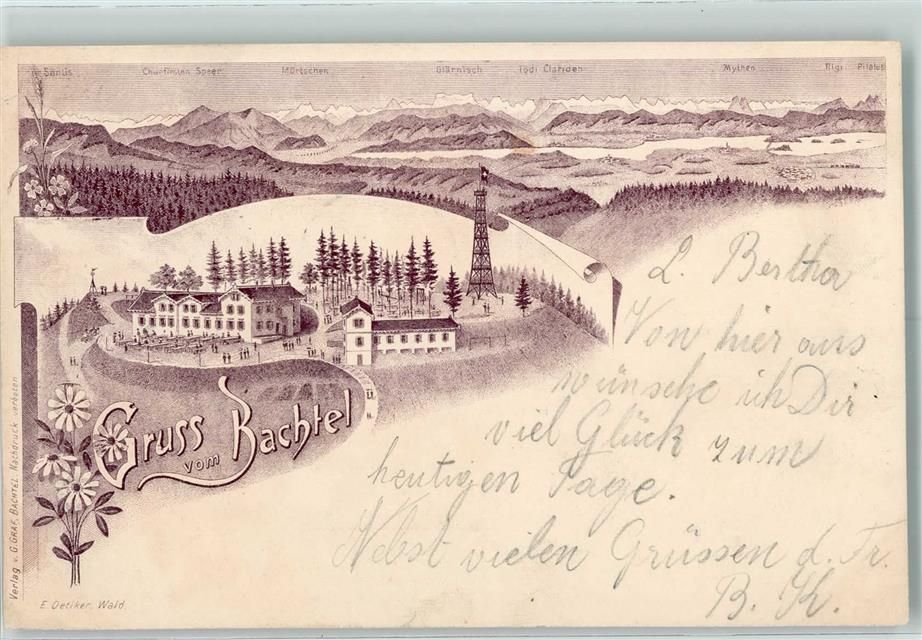 Säntis Churfirsten Speer Mürtschen Glärnisch Tödi Clariden Mythen Rigi Pilatus
Gruss
vom Bachtel
L. Bertha
Von hier aus
wünsche ich Dir
viel Glück zum
heutigen Tage.
Nebst vielen Grüssen d. Fr.
B. K.
Verlag v. G. GRAF, BACHTEL. Nachdruck verboten
E. Oetiker, Wald.